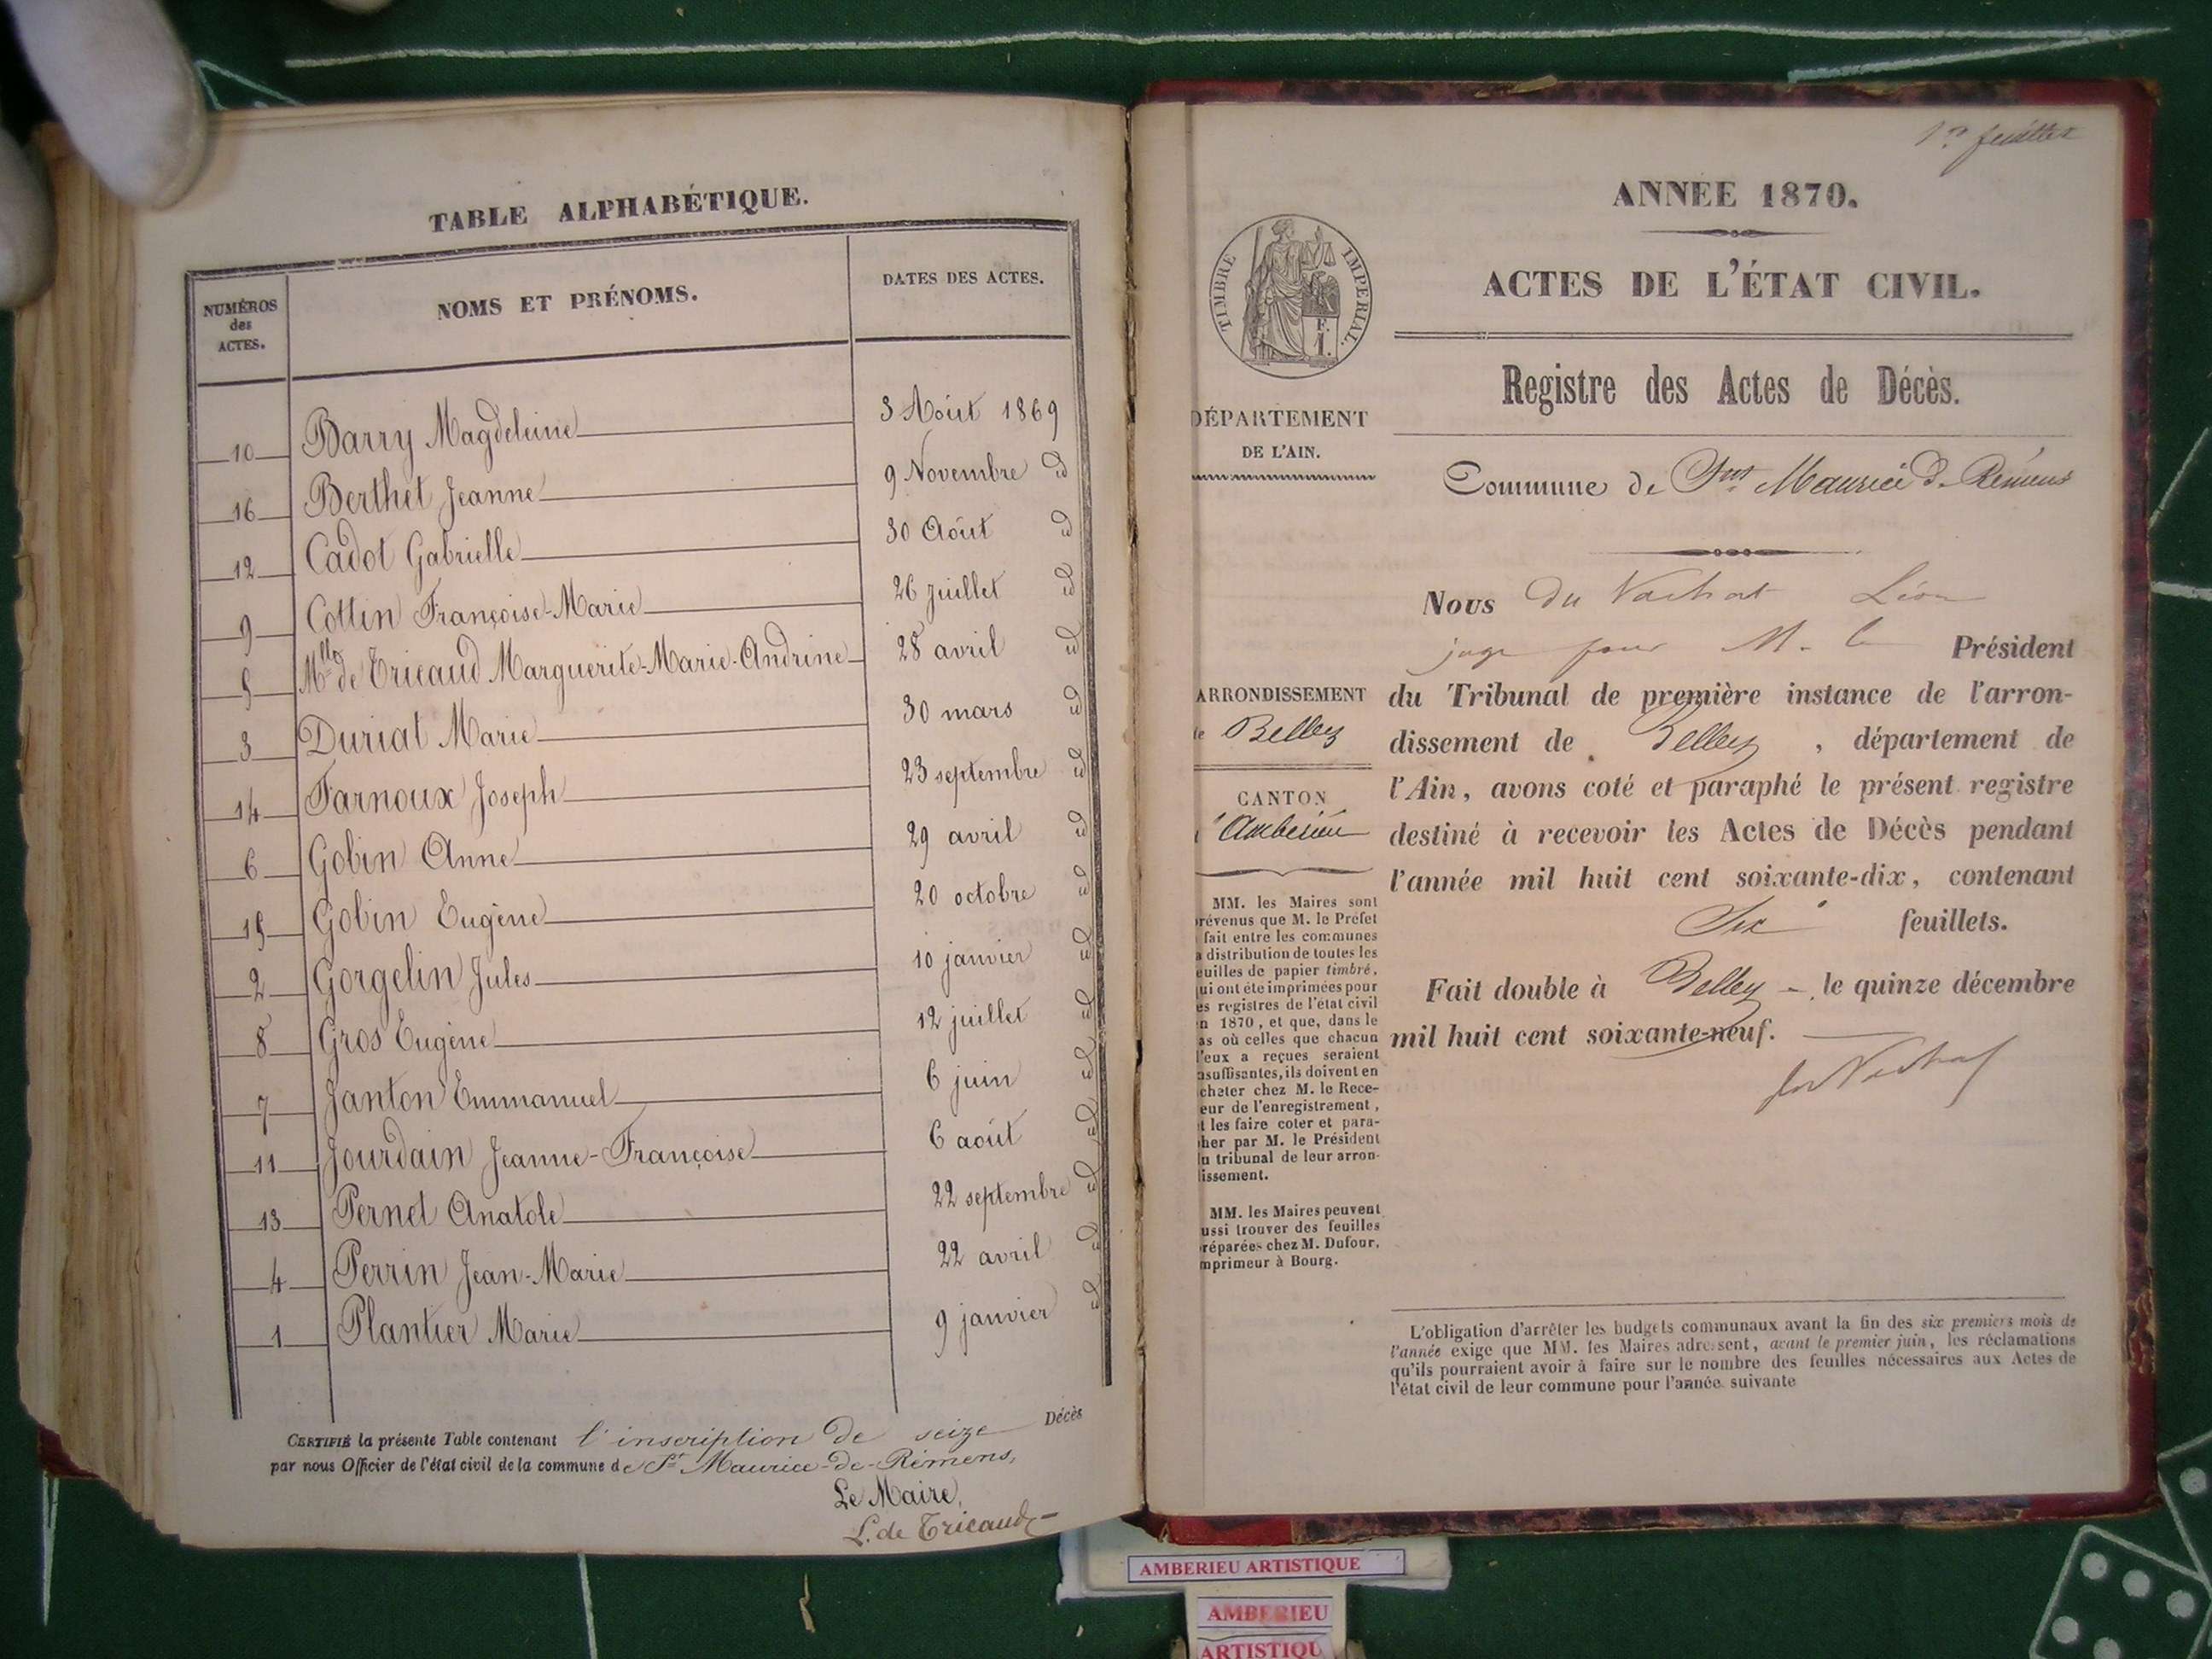 TABLE ALPHABÉTIQUE.
NUMÉROS des ACTES. NOMS ET PRÉNOMS. DATES DES ACTES.
10 Barry Magdeleine 3 Août 1869
16 Berthet Jeanne 9 Novembre id
12 Cadot Gabrielle 30 Août id
9 Cottin Françoise-Marie 26 juillet id
5 Mlle de Tricaud Marguerite-Marie-Andrine 28 avril id
3 Duriat Marie 30 mars id
14 Farnoux Joseph 23 septembre id
6 Gobin Anne 29 avril id
15 Gobin Eugène 20 octobre id
2 Gorgelin Jules 10 janvier id
8 Gros Eugène 12 juillet id
7 Janton Emmanuel 6 juin id
11 Jourdain Jeanne-Françoise 6 août id
13 Pernet Anatole 22 septembre id
4 Perrin Jean-Marie 22 avril id
1 Plantier Marie 9 janvier id
CERTIFIÉ la présente Table contenant l'inscription de seize Décès
par nous Officier de l'état civil de la commune de St Maurice-de-Rémens,
Le Maire,
L. de Tricaud
1er feuillet
ANNÉE 1870.
ACTES DE L'ÉTAT CIVIL.
TIMBRE IMPERIAL.
F.
1.
Registre des Actes de Décès.
DÉPARTEMENT
DE L'AIN.
Commune de St Maurice de Rémens
Nous du Vachat Léon
juge pour M. le Président
du Tribunal de première instance de l'arron-
dissement de Belley, département de
l'Ain, avons coté et paraphé le présent registre
destiné à recevoir les Actes de Décès pendant
l'année mil huit cent soixante-dix, contenant
Six feuillets.
Fait double à Belley le quinze décembre
mil huit cent soixante-neuf.
du Vachat
ARRONDISSEMENT
de Belley
CANTON
d'Ambérieu
MM. les Maires sont
prévenus que M. le Préfet
fait entre les communes
a distribution de toutes les
euilles de papier timbré,
ui ont été imprimées pour
es registres de l'état civil
n 1870, et que, dans le
as où celles que chacun
d'eux a reçues seraient
nsuffisantes, ils doivent en
cheter chez M. le Rece-
eur de l'enregistrement,
t les faire coter et para-
her par M. le Président
u tribunal de leur arron-
issement.
MM. les Maires peuvent
ussi trouver des feuilles
réparées chez M. Dufour,
mprimeur à Bourg.
L'obligation d'arrêter les budgets communaux avant la fin des six premiers mois de
l'année exige que MM. les Maires adressent, avant le premier juin, les réclamations
qu'ils pourraient avoir à faire sur le nombre des feuilles nécessaires aux Actes de
l'état civil de leur commune pour l'année suivante
AMBERIEU ARTISTIQUE
AMBERIEU
ARTISTIQU